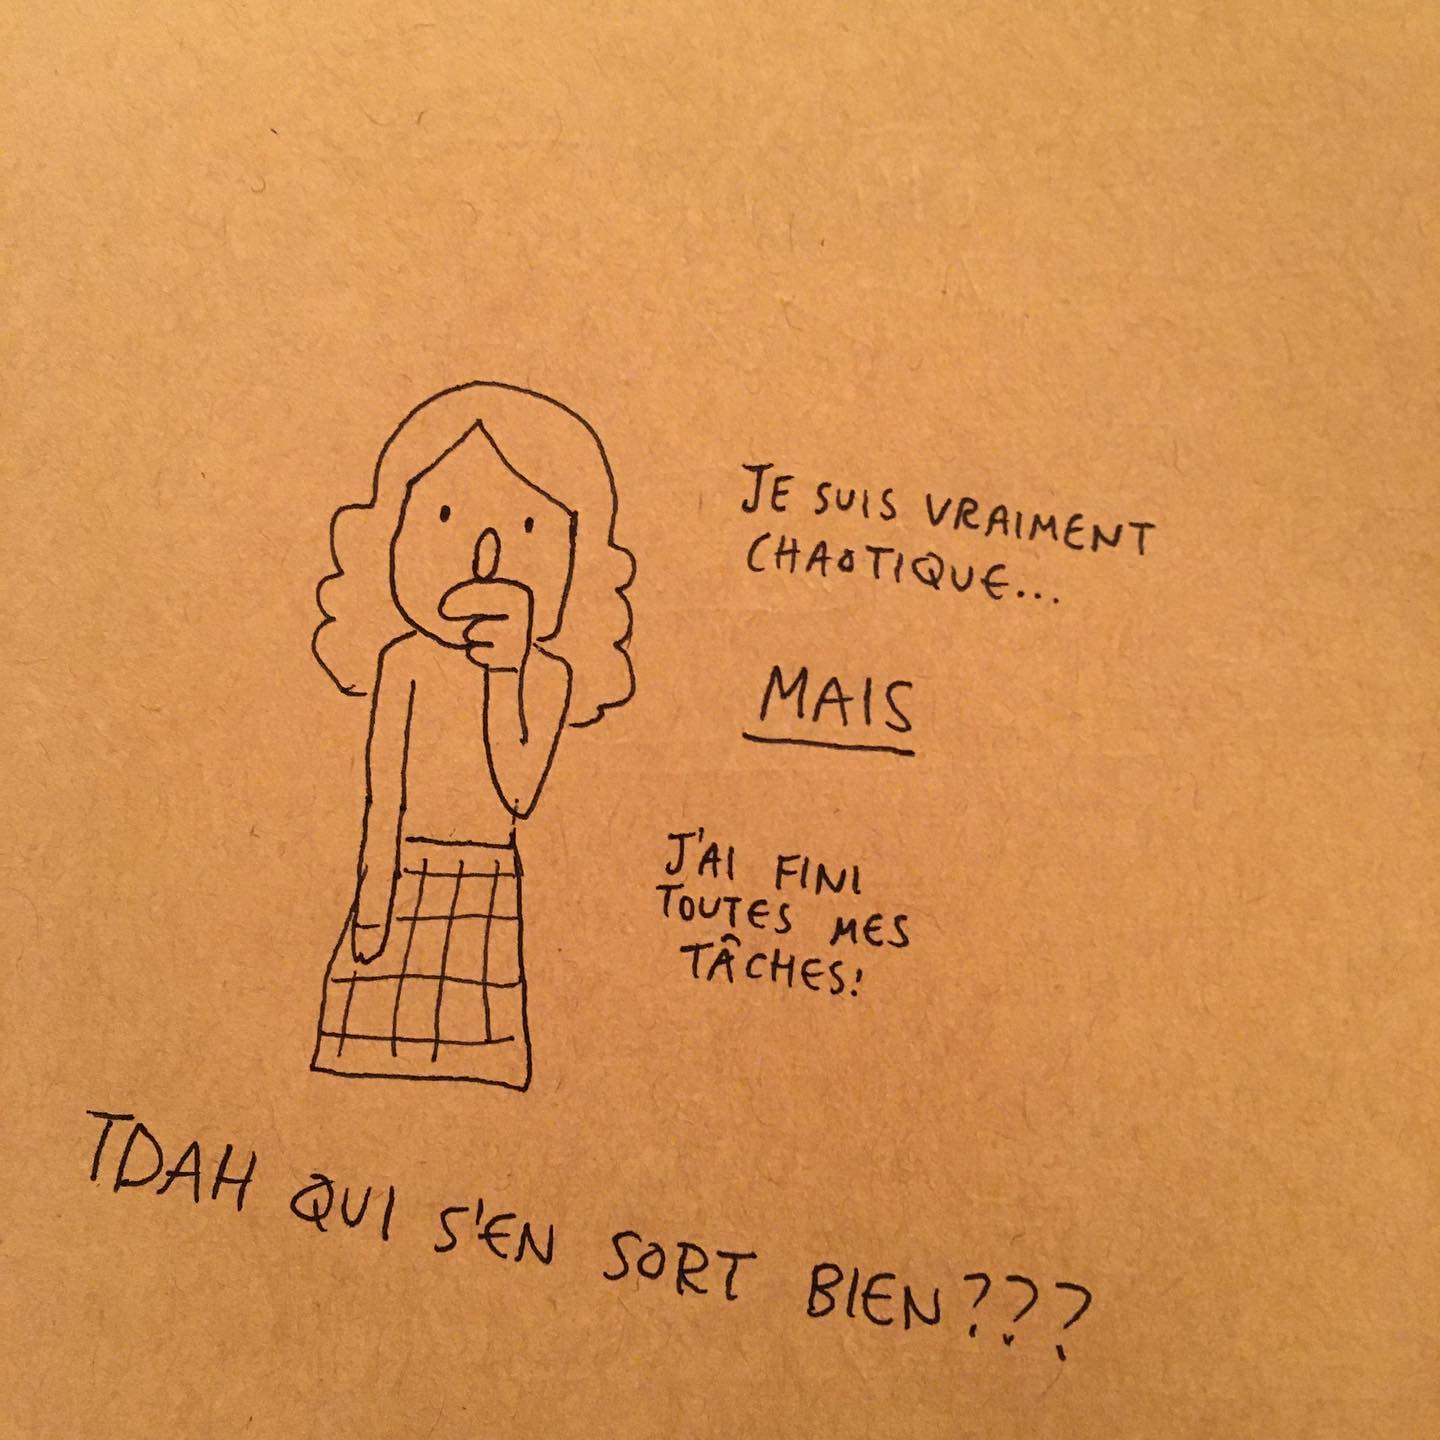 JE SUIS VRAIMENT
CHAOTIQUE...
MAIS
J'AI FINI
TOUTES MES
TÂCHES!
TDAH QUI S'EN SORT BIEN???